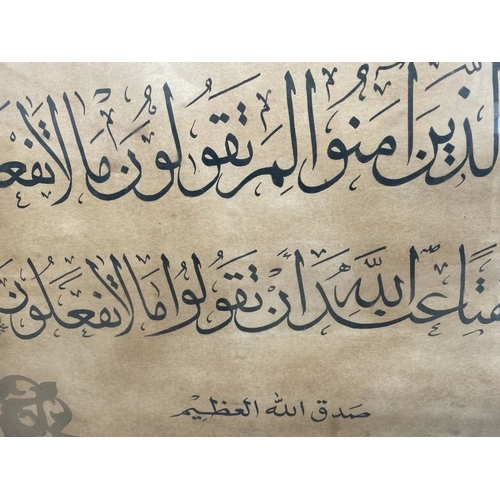 لذين آمنوا لم تقولون ما لا تفعلو
قتا عند الله ان تقولوا ما لا تفعلون
صدق الله العظيم